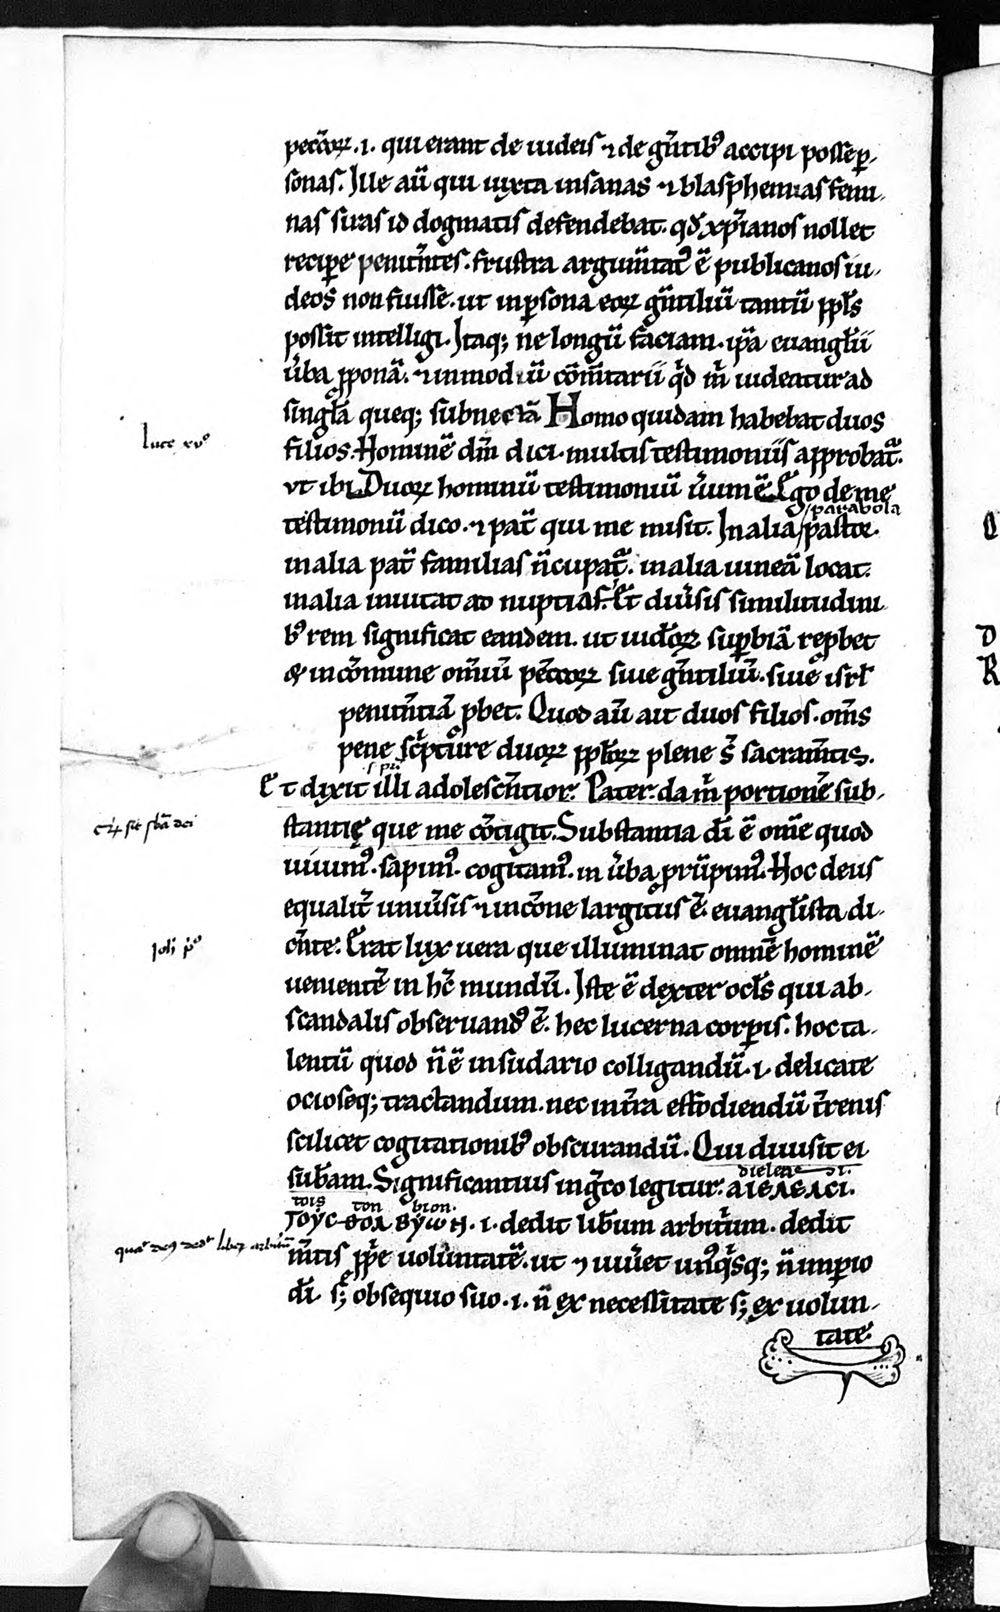 peccōꝝ .i. qui erant de iudeis ⁊ de gn̄tibꝰ accipi posse ꝑ-
sonas. Ille aū qui iuxta insanas ⁊ blasphemias feni-
nas suas id dogmatis defendebat. qđ xp̄ianos nollet
reciꝑe penitn̄tes. frustra argum̄tatᷣ ē publicanos iu-
deos non fuisse. ut in ꝑsona eoꝝ gn̄tiliū tantū ppl̄s
possit intelligi. Itaq; ne longū faciam. ip̄a euangl̄ii
ūba ꝓponā. ⁊ in modū cōm̄tarii qđ m̄ uideatur ad
singl̄a queq; subnectā Homo quidam habebat duos
luce xvº
filios. Hominē dm̄ dici. multis testimoniis approbatᷣ.
vt ibi. Duoꝝ hominū testimoniū ūum ē. Ego de me
parabola
testimoniū dico. ⁊ pat̄ qui me misit. In alia pastor.
in alia pat̄ familias n̄cupatᷣ. in alia uineā locat.
in alia inuitat ad nuptias. Et diūsis similitudini
bꝰ rem significat eandem. ut iudeoꝝ suꝑbiā reꝓbet
& in cōmune om̄iū pec̄coꝝ siue gn̄tiliū. siue isrl̄
penitn̄tiā ꝓbet. Quod aū ait duos filios. om̄s
pene sc̄pture duoꝝ ppl̄oꝝ plene s̄ sacram̄tis.
Et dixit illi adolescn̄tior. Pater. da m̄ portionē sub-
stantię que me cōtigit. Substantia dī ē om̄e quod
uiuimꝰ. sapimꝰ. cogitamꝰ. in ūba prūpimꝰ. Hoc deus
equalit̄ uniūsis ⁊ in cōne largitus ē. euangl̄ista di-
Ioħ pº
cn̄te. Erat lux uera que illuminat omnē hominē
uenientē in hc̄ mundū. Iste ē dexter ocl̄s qui ab
scandalis obseruandꝰ ē. hec lucerna corꝑis. hoc ta-
lentū quod n̄ ē in sudario colligandū .i. delicate
ocioseq; tractandum. nec in t̄ra effodiendū t̄renis
scilicet cogitationibꝰ obscurandū. Qui diuisit ei
dielen
sub̄am. Significantius in gͣco legitur. ΔΙΕΛΕΛCΙ.
tois ton bion
ΤΟΥC ΘΟΛ ΒΥΩΗ .i. dedit lib̄um arbitⁱum. dedit
m̄tis ꝓp̄e uoluntatē. ut ⁊ uiūet unꝰqⁱsq; n̄ imꝑio
dī. s; obsequio suo .i. n̄ ex necessitate s; ex uolun-
tate.